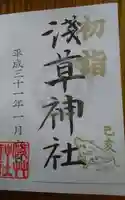 初詣
浅草神社
平成三十一年一月
己亥